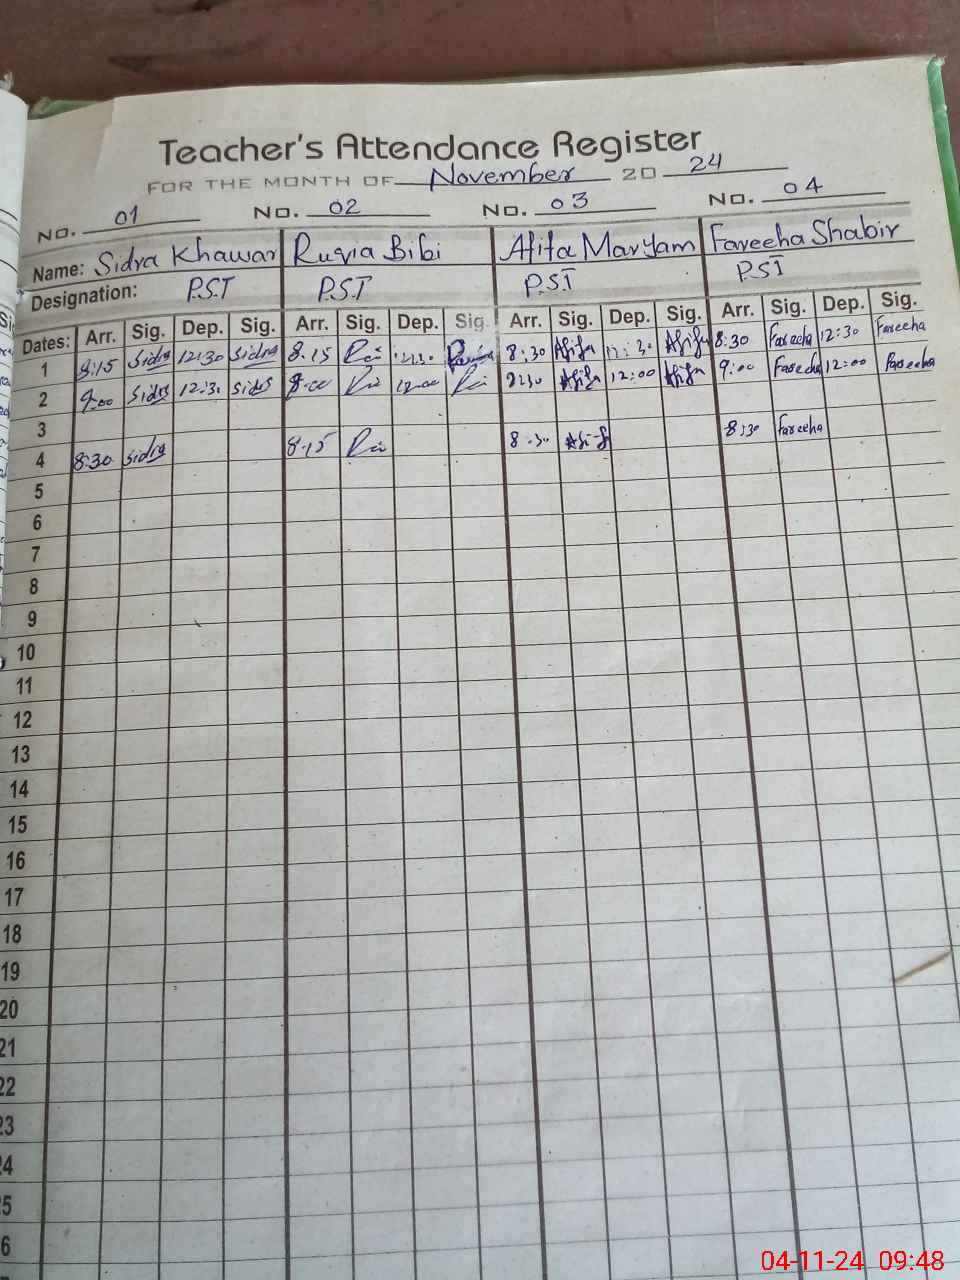 Teacher's Attendance Register
FOR THE MONTH OF November 20 24
No. 01 No. 02 No. 03 No. 04
Name: Sidra Khawar Ruqia Bibi Afifa Maryam Fareeha Shabir
Designation: P.S.T P.S.T P.S.T P.S.T
Dates: Arr. Sig. Dep. Sig. Arr. Sig. Dep. Sig. Arr. Sig. Dep. Sig. Arr. Sig. Dep. Sig.
1 8:15 Sidra 12:30 Sidra 8.15 12:30 8:30 Afifa 12:30 Afifa 8:30 Fareeha 12:30 Fareeha
2 9:00 Sidra 12:3 Sidra 8:00 12:00 8:30 Afifa 12:00 Afifa 9:00 Fareeha 12:00 Fareeha
3
4 8:30 Sidra 8:15 8:30 Afifa 8:30 Fareeha
5
6
7
8
9
10
11
12
13
14
15
16
17
18
19
20
21
22
23
24
25
26
04-11-24 09:48